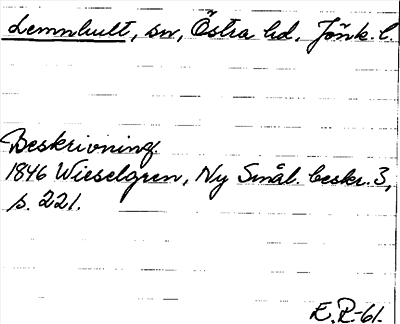 Lemnhult, sn, Östra hd, Jönk. l.
Beskrivning.
1846 Wieselgren, Ny Smål. beskr. 3,
s. 221.
E.R-61.